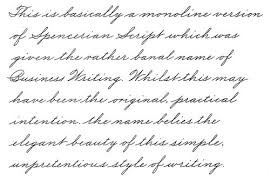 This is basically a monoline version
of Spencerian Script which was
given the rather banal name of
Business Writing. Whilst this may
have been the original, practical
intention, the name belies the
elegant beauty of this simple,
unpretentious style of writing.